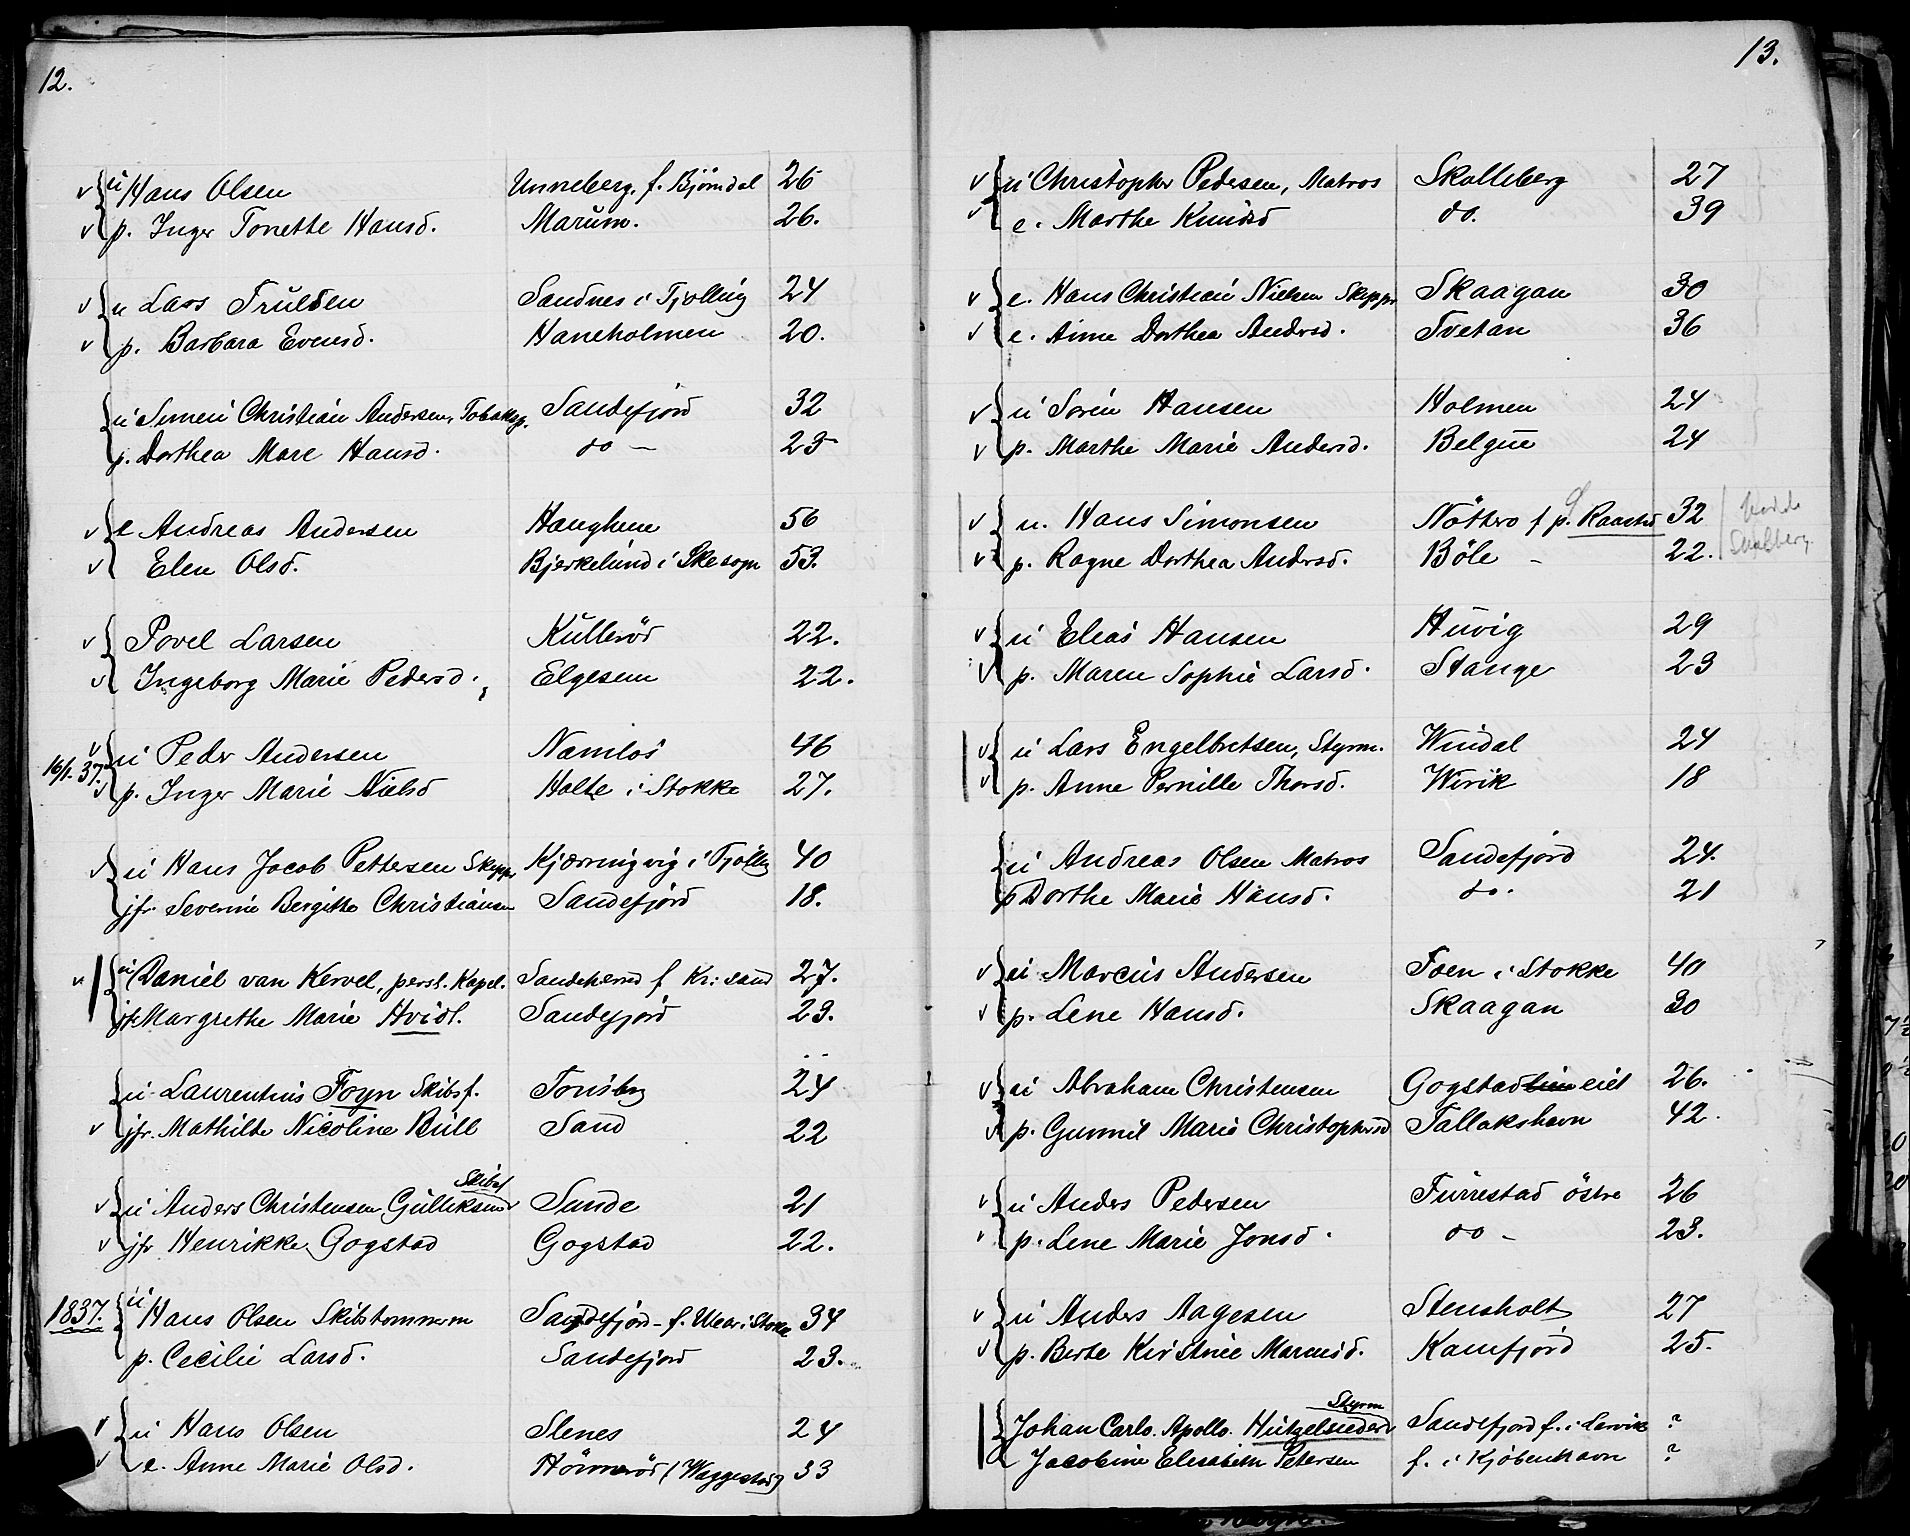 12.
v u Hans Olsen Unneberg, f. Bjørndal 26
v p. Inger Tonette Hansd. Marum. 26.
v u Lars Trulsen Sandnes i Tjølling 24
v p. Barbara Evensd. Haneholmen 20.
u Simen Christian Andersen, Sandefjord 32
p. Dorthea Mare Hansd. do — 25
v e Andreas Andersen Haughem 56
v Elen Olsd. Bjerkelund i Skesogn 53.
v Povel Larsen Kullerød 22.
v Ingeborg Marie Pedersd. Elgesem 22.
16/1. 37. v u Peder Andersen Namløs 46
v p. Inger Marie Nielsd Holte i Stokke 27.
v u Hans Jacob Pettersen Skipper Kjærringvig i Tjølling 40
jfr. Severine Bergitte Christiansen Sandefjord 18.
v u Daniel van Kervel, persl. Kapel. Sandeherred f Kr:sand 27.
jfr Margrethe Marie Hvidt. Sandefjord 23.
u Laurentius Foyn Skibsf. Tønsbrg 24
v jfr. Mathilde Nicoline Bull Sand 22
Skibsf
v u Anders Christensen Gulliksen Sunde 21
v jfr Henrikke Gogstad Gogstad 22.
1837. u Hans Olsen Skibstømmerm Sandefjord - f. Wear i Stokke 34
p. Cecilie Larsd. Sandefjord 23.
v u Hans Olsen Slenes 24
v e. Anne Marie Olsd. Hönnerød (Waggestad) 33
13.
v u Christopher Pedersen, Matros Skalleberg 27
v e. Marthe Knudsd do. 39
v e. Hans Christian Nielsen Skipper Skaagan 30
v e. Anne Dorthea Andersd. Tvetan 36
v u Sørin Hansen Holmen 24
v p. Marthe Marie Andersd. Belgue 24
v u. Hans Simonsen Nöttero f p. Raastad 32
v p. Ragne Dorthea Andersd. Böle — 22.
v u Elias Hansen Huvig 29
v p. Maren Sophie Larsd. Stange 23
v u Lars Engelbretsen, Styrm. Windal 24
v p. Anne Pernille Thorsd. Wirik 18
u Andreas Olsen Matros Sandefjord 24.
p Dorthe Marie Hansd. do. 21
v u Marcus Andersen Foen i Stokke 40
v p. Lene Hansd. Skaagan 30
v u Abraham Christensen Gogstad eiet 26.
v p. Gunnil Marie Christophersd Tallakshavn 42.
v u Anders Pedersen Furrestad östre 26
v p. Lene Marie Jonsd. do — 23.
v u Anders Aagesen Stensholt 27
v p. Berte Kirstine Marcusd. Kamfjord 25.
Styrm
Johan Carlo. Apollo. Hutzelsieder Sandefjord f. i Larvik ?
Jacobine Elisabeth Petersen f. i Kjøbenhavn ?